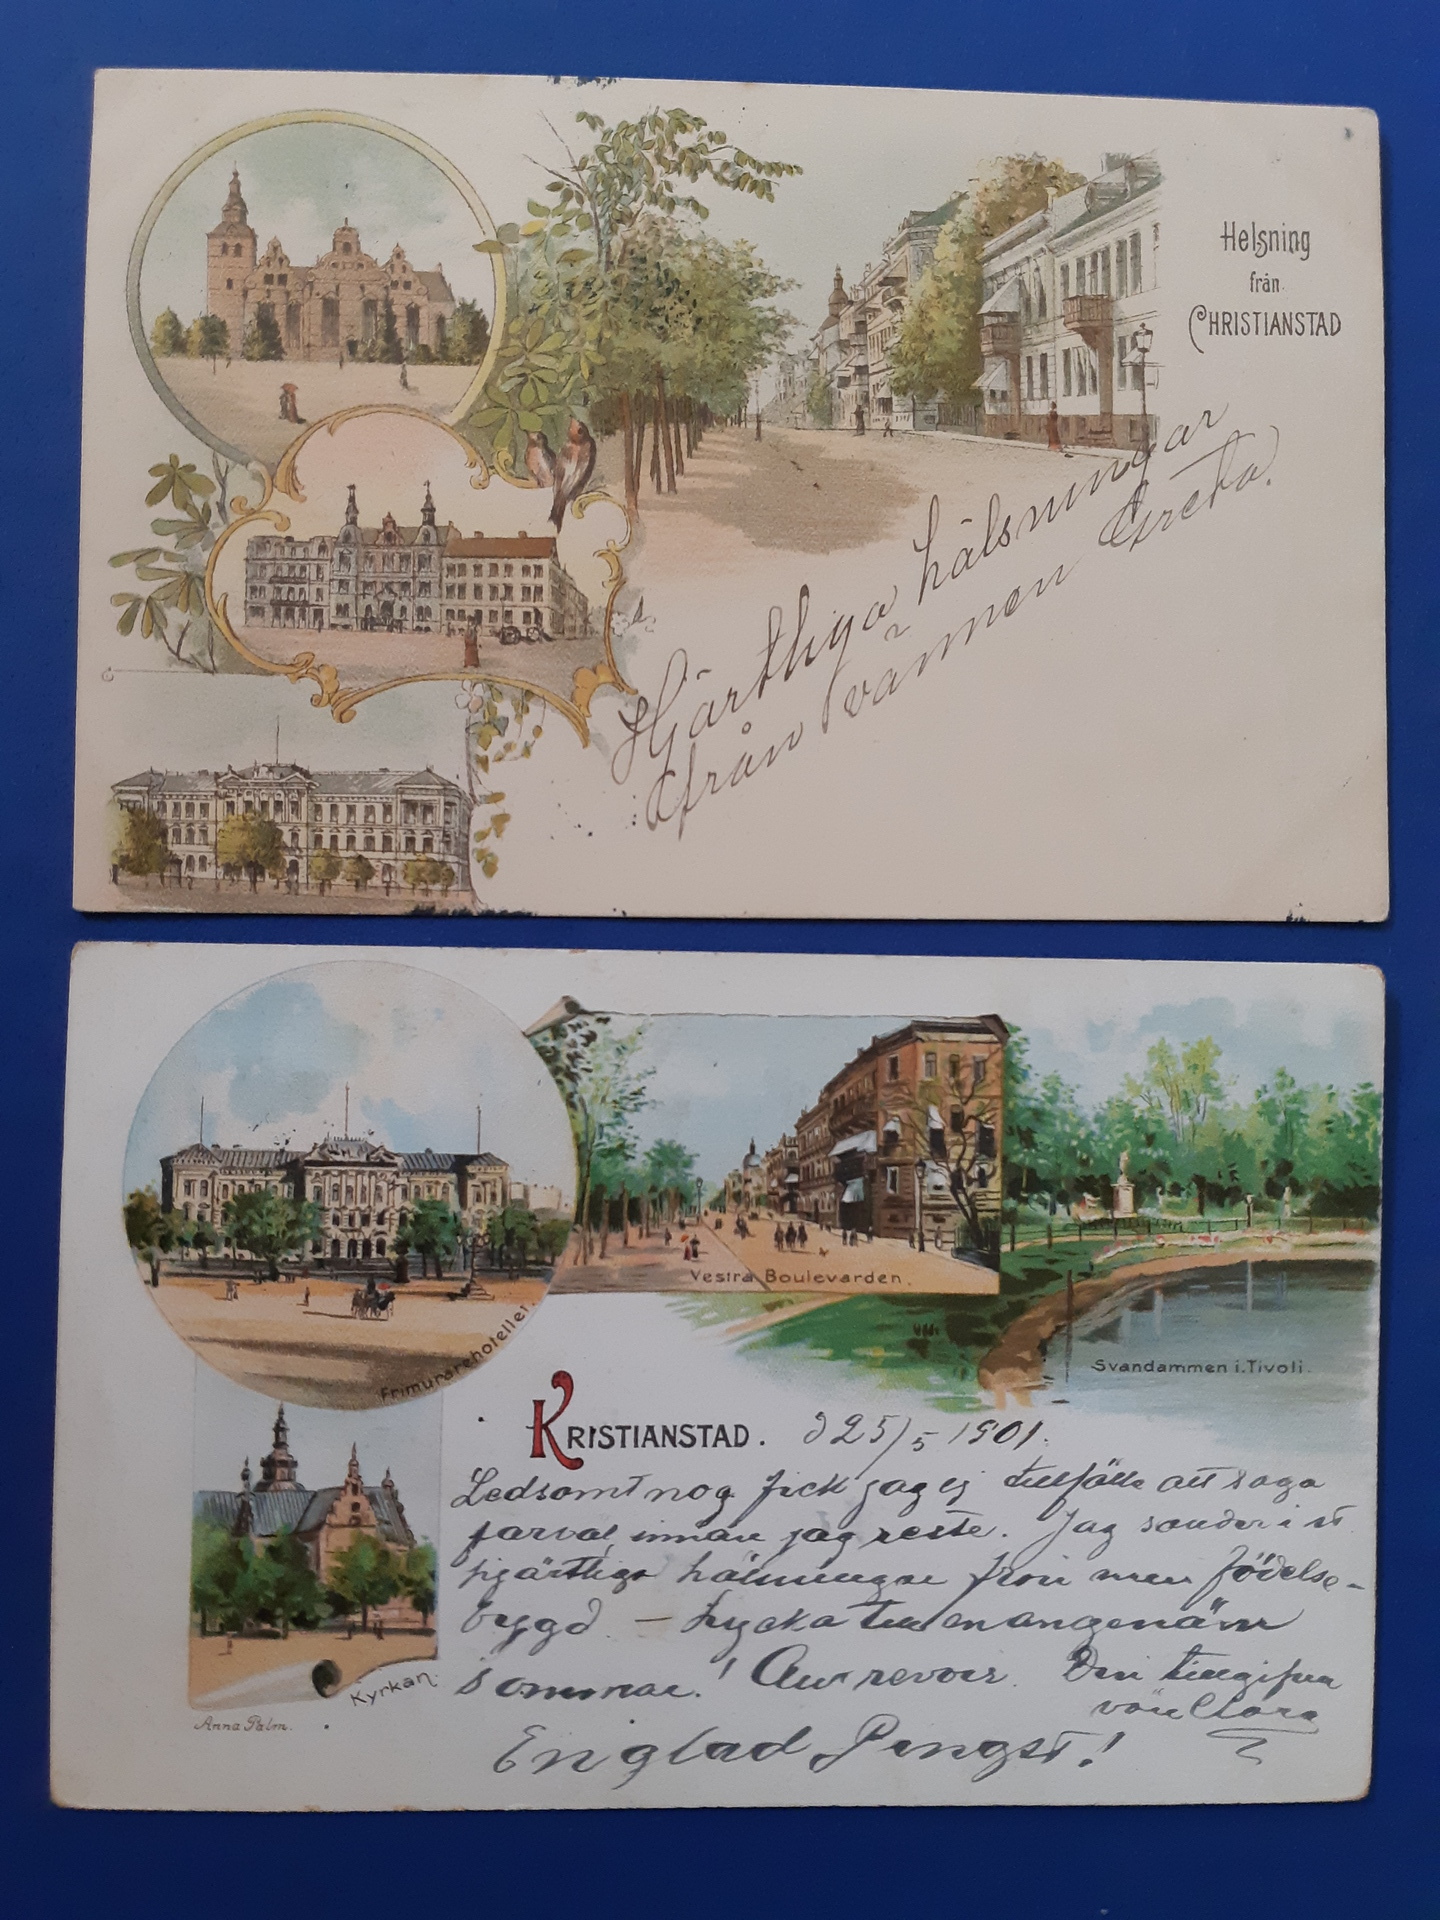 Helsning
från
CHRISTIANSTAD
Hjärtliga hälsningar
från vännen Greta.
Frimurarehotellet.
Vestra Boulevarden.
Svandammen i Tivoli.
KRISTIANSTAD. d 25/5 1901.
Ledsamt nog fick jag ej tillfälle att säga
farväl innan jag reste. Jag sänder i st
hjärtliga hälsningar från min födelse-
bygd – Lycka till en angenäm
sommar! Au revoir. Din tillgifna
vän Clara
En glad Pingst!
Kyrkan.
Anna Palm.